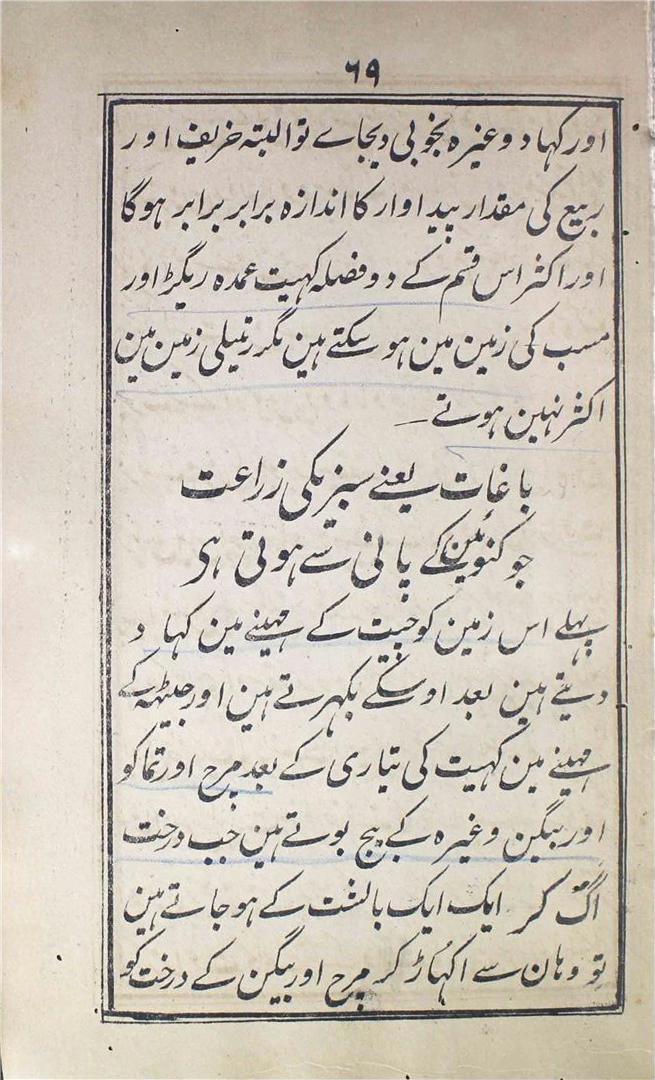 ۶۹
اور کہاد وغیرہ بخوبی دیجاے تو البتہ خریف اور
ربیع کی مقدار پیداوار کا اندازہ برابر برابر ہوگا
اور اکثر اس قسم کے دو فصلہ کہیت عمدہ ریگڑ اور
مسب کی زمین مین ہو سکتے ہین مگر رتیلی زمین مین
اکثر نہین ہوتے۔
باغات یعنے سبزیکی زراعت
جو کنوئین کے پانی سے ہوتی ہی
پہلے اس زمین کو چیت کے مہینے مین کہاد
دیتے ہین بعد اوسکے بکہرتے ہین اور جیٹہہ کے
مہینے مین کہیت کی تیاری کے بعد مرچ اور تماکو
اور بیگین وغیرہ کے بیج بوتے ہین جب درخت
اگ کر ایک ایک بالشت کے ہو جاتے ہین
تو وہان سے اکہاڑ کر مرچ اور بیگن کے درخت کو